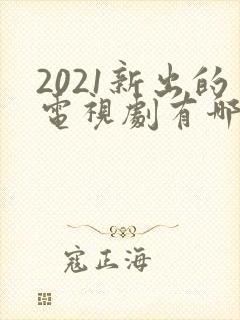 2021新出的
電視劇有哪
寇正海